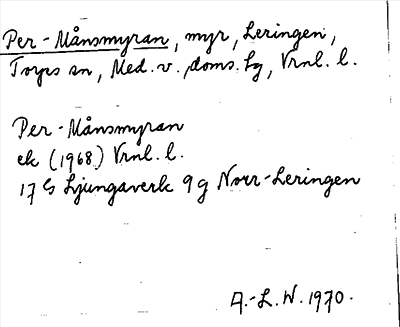 Per-Månsmyran, myr, Leringen,
Torps sn, Med. v. doms. hg, Vrnl. l.
Per-Månsmyran
ek (1968) Vrnl. l.
17 G Ljungaverk 9 g Norr-Leringen
A.-L. W. 1970.